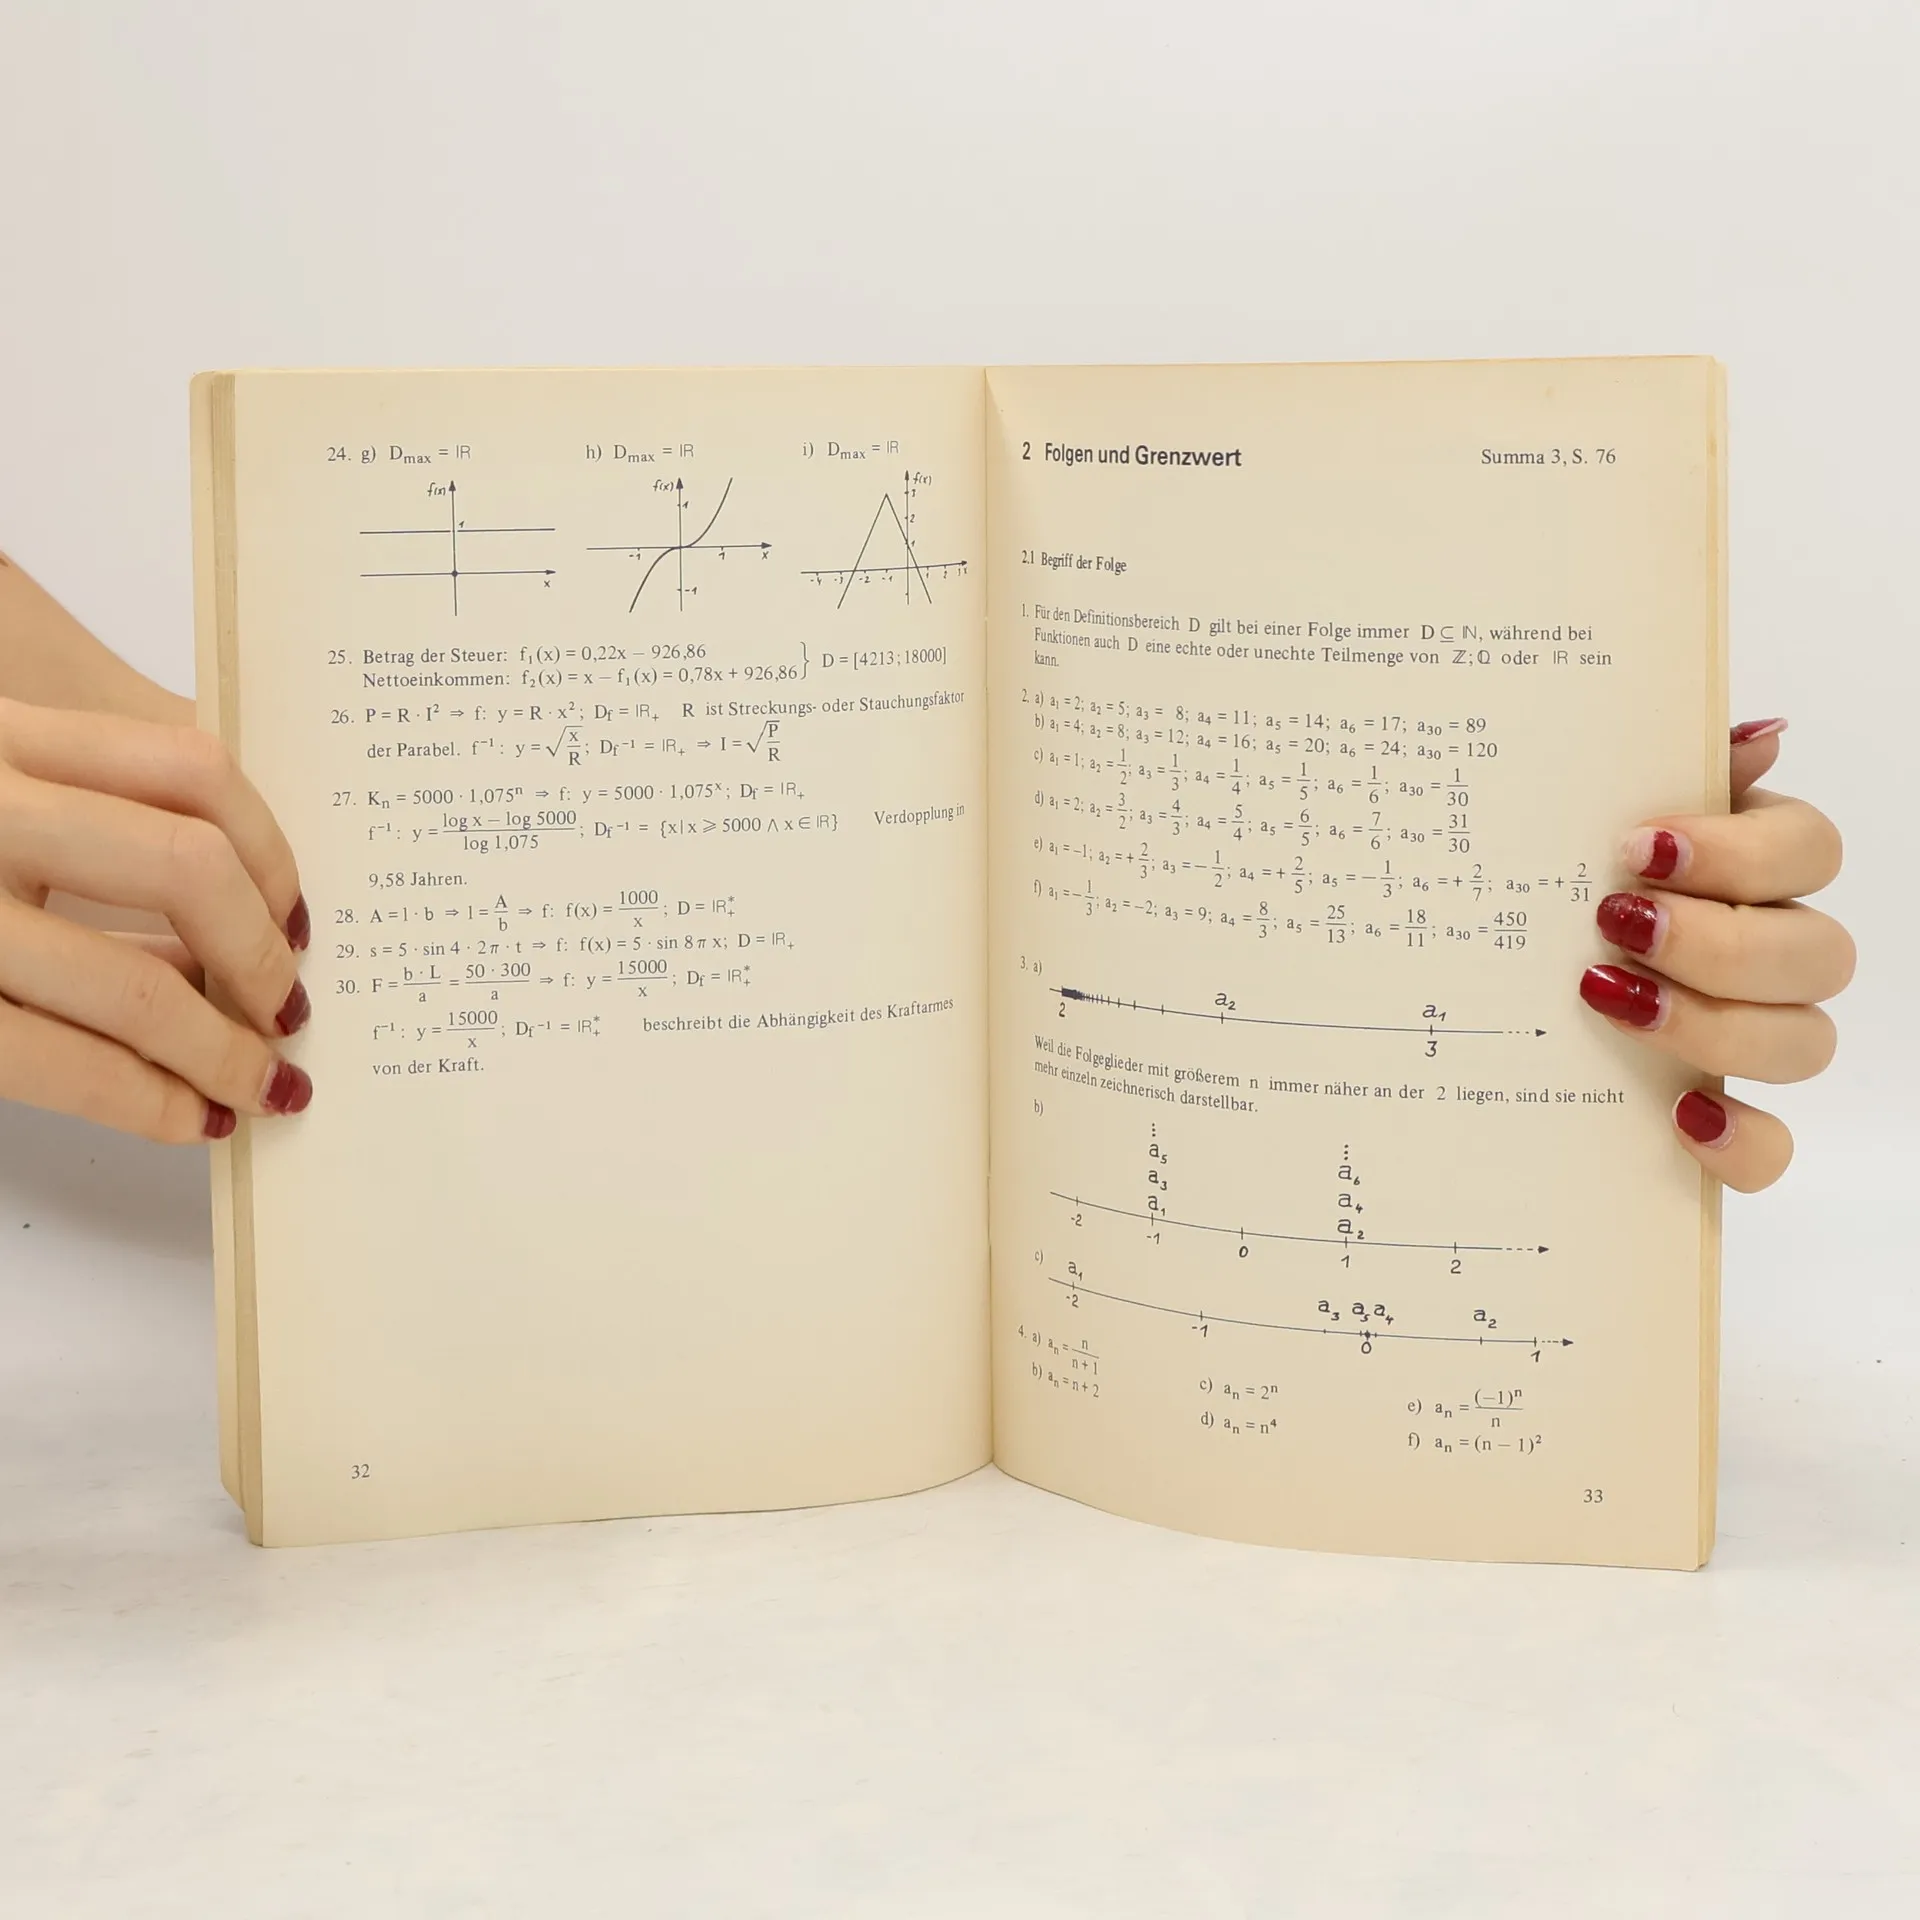 24. g) Dmax = ℝ h) Dmax = ℝ i) Dmax = ℝ
f(x) f(x) f(x)
1 1 3
2
1
-1 1 x
x -4 -3 -2 -1 1 2 x
-1
25. Betrag der Steuer: f₁(x) = 0,22x – 926,86
Nettoeinkommen: f₂(x) = x – f₁(x) = 0,78x + 926,86 } D = [4213; 18000]
26. P = R · I² ⇒ f: y = R · x²; Df = ℝ₊ R ist Streckungs- oder Stauchungsfaktor
der Parabel. f⁻¹: y = √(x/R); Df⁻¹ = ℝ₊ ⇒ I = √(P/R)
27. Kₙ = 5000 · 1,075ⁿ ⇒ f: y = 5000 · 1,075ˣ; Df = ℝ₊
f⁻¹: y = (log x – log 5000)/(log 1,075); Df⁻¹ = {x | x ⩾ 5000 ∧ x ∈ ℝ} Verdopplung in
9,58 Jahren.
28. A = l · b ⇒ l = A/b ⇒ f: f(x) = 1000/x; D = ℝ₊*
29. s = 5 · sin 4 · 2π · t ⇒ f: f(x) = 5 · sin 8π x; D = ℝ₊
30. F = (b · L)/a = (50 · 300)/a ⇒ f: y = 15000/x; Df = ℝ₊*
f⁻¹: y = 15000/x; Df⁻¹ = ℝ₊* beschreibt die Abhängigkeit des Kraftarmes
von der Kraft.
32
2 Folgen und Grenzwert Summa 3, S. 76
2.1 Begriff der Folge
1. Für den Definitionsbereich D gilt bei einer Folge immer D ⊆ ℕ, während bei
Funktionen auch D eine echte oder unechte Teilmenge von ℤ; ℚ oder ℝ sein
kann.
2. a) a₁ = 2; a₂ = 5; a₃ = 8; a₄ = 11; a₅ = 14; a₆ = 17; a₃₀ = 89
b) a₁ = 4; a₂ = 8; a₃ = 12; a₄ = 16; a₅ = 20; a₆ = 24; a₃₀ = 120
c) a₁ = 1; a₂ = 1/2; a₃ = 1/3; a₄ = 1/4; a₅ = 1/5; a₆ = 1/6; a₃₀ = 1/30
d) a₁ = 2; a₂ = 3/2; a₃ = 4/3; a₄ = 5/4; a₅ = 6/5; a₆ = 7/6; a₃₀ = 31/30
e) a₁ = –1; a₂ = + 2/3; a₃ = – 1/2; a₄ = + 2/5; a₅ = – 1/3; a₆ = + 2/7; a₃₀ = + 2/31
f) a₁ = – 1/3; a₂ = –2; a₃ = 9; a₄ = 8/3; a₅ = 25/13; a₆ = 18/11; a₃₀ = 450/419
3. a)
a₂ a₁
2 3
Weil die Folgeglieder mit größerem n immer näher an der 2 liegen, sind sie nicht
mehr einzeln zeichnerisch darstellbar.
b)
⋮ ⋮
a₅ a₆
a₃ a₄
a₁ a₂
-2 -1 0 1 2
c)
a₁ a₃ a₅ a₄ a₂
-2 -1 0 1
4. a) aₙ = n/(n + 1) c) aₙ = 2ⁿ e) aₙ = (–1)ⁿ/n
b) aₙ = n + 2 d) aₙ = n⁴ f) aₙ = (n – 1)²
33